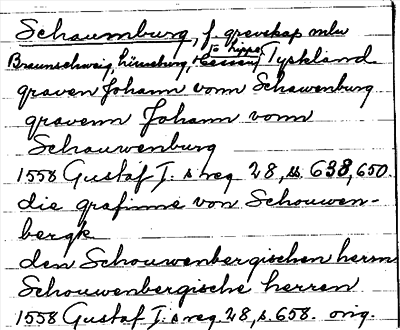 Schaumburg, f. grevskap mln
Braunschweig, Lüneburg, Hessen, Tyskland.
graven Johann vonn Schawenburg
gravenn Johann vonn
Schauwenburg
1558 Gustaf I. s reg 28, ss. 638, 650.
die grafinne von Schouwen-
bergk
den Schouwenbergischen herrn
Schouwenbergische herren
1558 Gustaf I. s reg. 28, s. 658. orig.